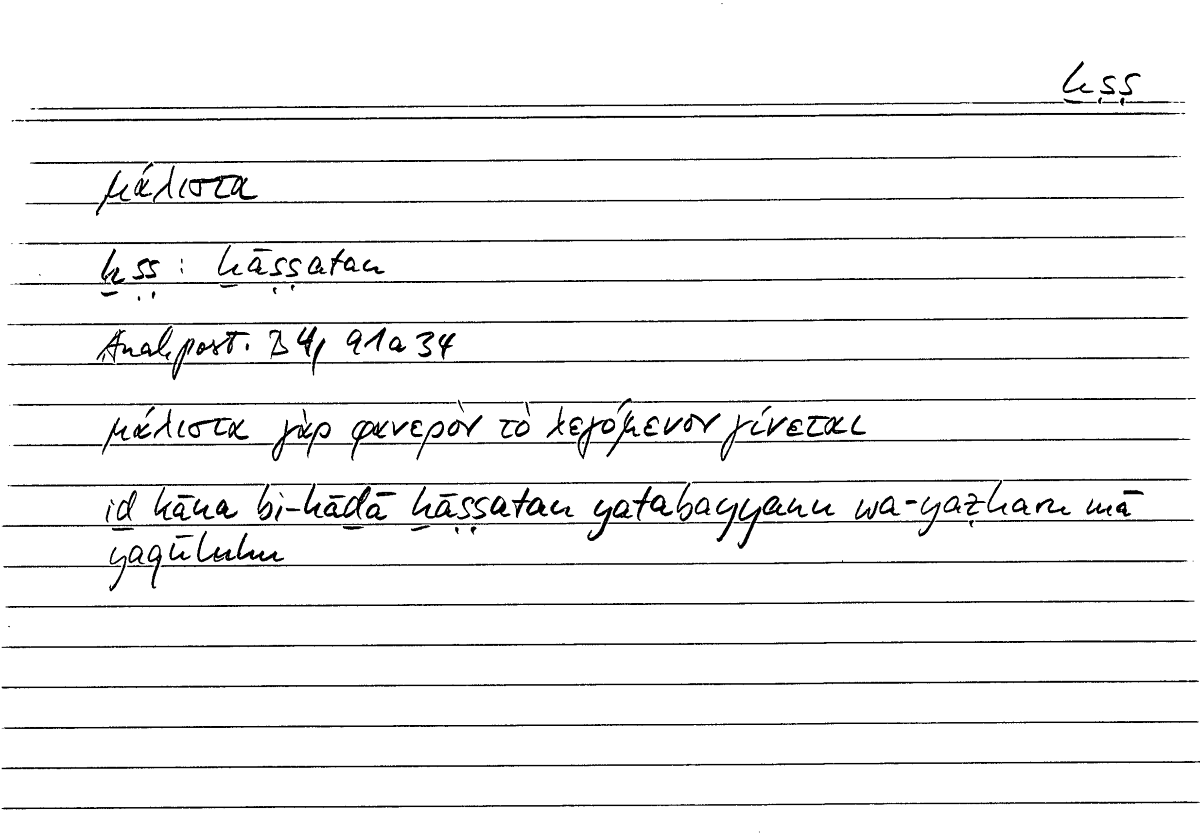 ḫṣṣ
μάλιστα
ḫṣṣ : ḫāṣṣatan
Anal. post. B 4, 91a34
μάλιστα γὰρ φανερὸν τὸ λεγόμενον γίνεται
iḏ kāna bi-hāḏā ḫāṣṣatan yatabayyanu wa-yaẓharu mā
yaqūluhu